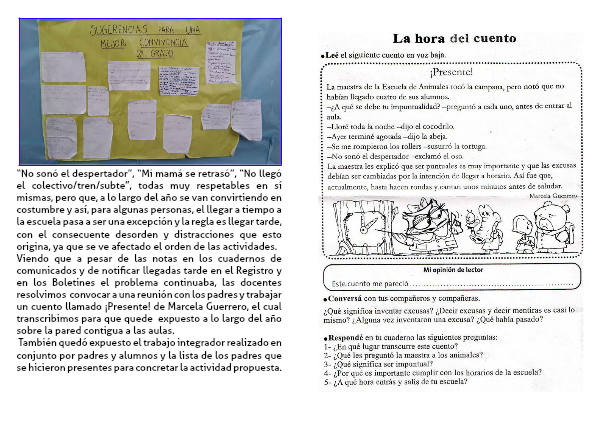 SUGERENCIAS PARA UNA
MEJOR CONVIVENCIA
2º GRADO
"No sonó el despertador", "Mi mamá se retrasó", "No llegó
el colectivo/tren/subte", todas muy respetables en sí
mismas, pero que, a lo largo del año se van convirtiendo en
costumbre y así, para algunas personas, el llegar a tiempo a
la escuela pasa a ser una excepción y la regla es llegar tarde,
con el consecuente desorden y distracciones que esto
origina, ya que se ve afectado el orden de las actividades.
Viendo que a pesar de las notas en los cuadernos de
comunicados y de notificar llegadas tarde en el Registro y
en los Boletines el problema continuaba, las docentes
resolvimos convocar a una reunión con los padres y trabajar
un cuento llamado ¡Presente! de Marcela Guerrero, el cual
transcribimos para que quede expuesto a lo largo del año
sobre la pared contigua a las aulas.
También quedó expuesto el trabajo integrador realizado en
conjunto por padres y alumnos y la lista de los padres que
se hicieron presentes para concretar la actividad propuesta.
La hora del cuento
• Leé el siguiente cuento en voz baja.
¡Presente!
La maestra de la Escuela de Animales tocó la campana, pero notó que no
habían llegado cuatro de sus alumnos.
–¿A qué se debe tu impuntualidad? –preguntó a cada uno, antes de entrar al
aula.
–Lloré toda la noche –dijo el cocodrilo.
–Ayer terminé agotada –dijo la abeja.
–Se me rompieron los rollers –susurró la tortuga.
–No sonó el despertador –exclamó el oso.
La maestra les explicó que ser puntuales es muy importante y que las excusas
debían ser cambiadas por la intención de llegar a horario. Así fue que,
actualmente, hasta hacen rondas y cantan unos minutos antes de saludar.
Marcela Guerrero
Mi opinión de lector
Este cuento me pareció
• Conversá con tus compañeros y compañeras.
¿Qué significa inventar excusas? ¿Decir excusas y decir mentiras es casi lo
mismo? ¿Alguna vez inventaron una excusa? ¿Qué había pasado?
• Respondé en tu cuaderno las siguientes preguntas:
1- ¿En qué lugar transcurre este cuento?
2- ¿Qué les preguntó la maestra a los animales?
3- ¿Qué significa ser impuntual?
4- ¿Por qué es importante cumplir con los horarios de la escuela?
5- ¿A qué hora entrás y salís de tu escuela?